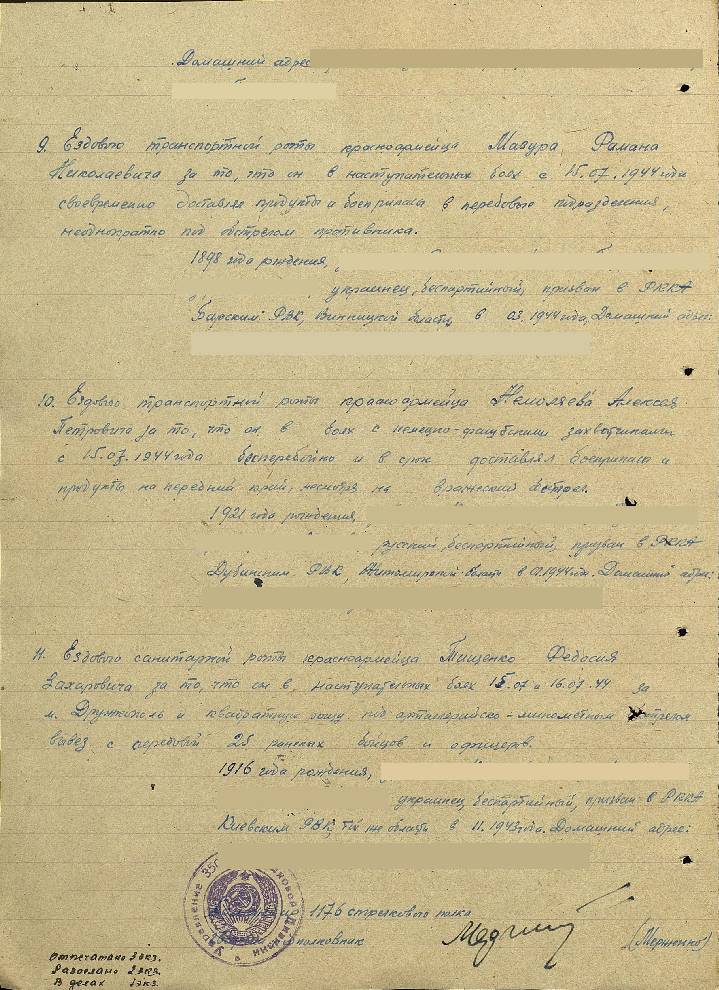 Домашний адрес
9. Ездового транспортной роты красноармейца Мазура Рамана
Николаевича за то, что он в наступательных боях с 15.07.1944 года
своевременно доставлял продукты и боеприпаса в передовые подразделения,
неоднократно под обстрелом противника.
1898 года рождения,
украинец, беспартийный, призван в РККА
Барским РВК, Винницкой области, в 03.1944 года, Домашний адрес:
10. Ездового транспортной роты красноармейца Немоляева Алексея
Петровича за то, что он в боях с немецко-фашистскими захватчиками
с 15.07.1944 года бесперебойно и в срок доставлял боеприпасы и
продукты на передний край, несмотря на вражеский обстрел.
1921 года рождения,
русский, беспартийный, призван в РККА
РВК, Житомирской области в 01.1944 года, Домашний адрес:
11. Ездового санитарной роты красноармейца Тищенко Федосия
Захаровича за то, что он в наступательных боях 15.07 и 16.07.44 за
м. Дружкополь и квадратную рощу под артиллерийско-минометным обстрелом
вывез с передовой 25 раненых бойцов и офицеров.
1916 года рождения,
украинец, беспартийный, призван в РККА
Киевским РВК, той же области в 11.1943 года. Домашний адрес:
Управление
1176 стрелкового полка
полковник
Отпечатано 3 экз.
Разослано 2 экз.
В делах 1 экз.